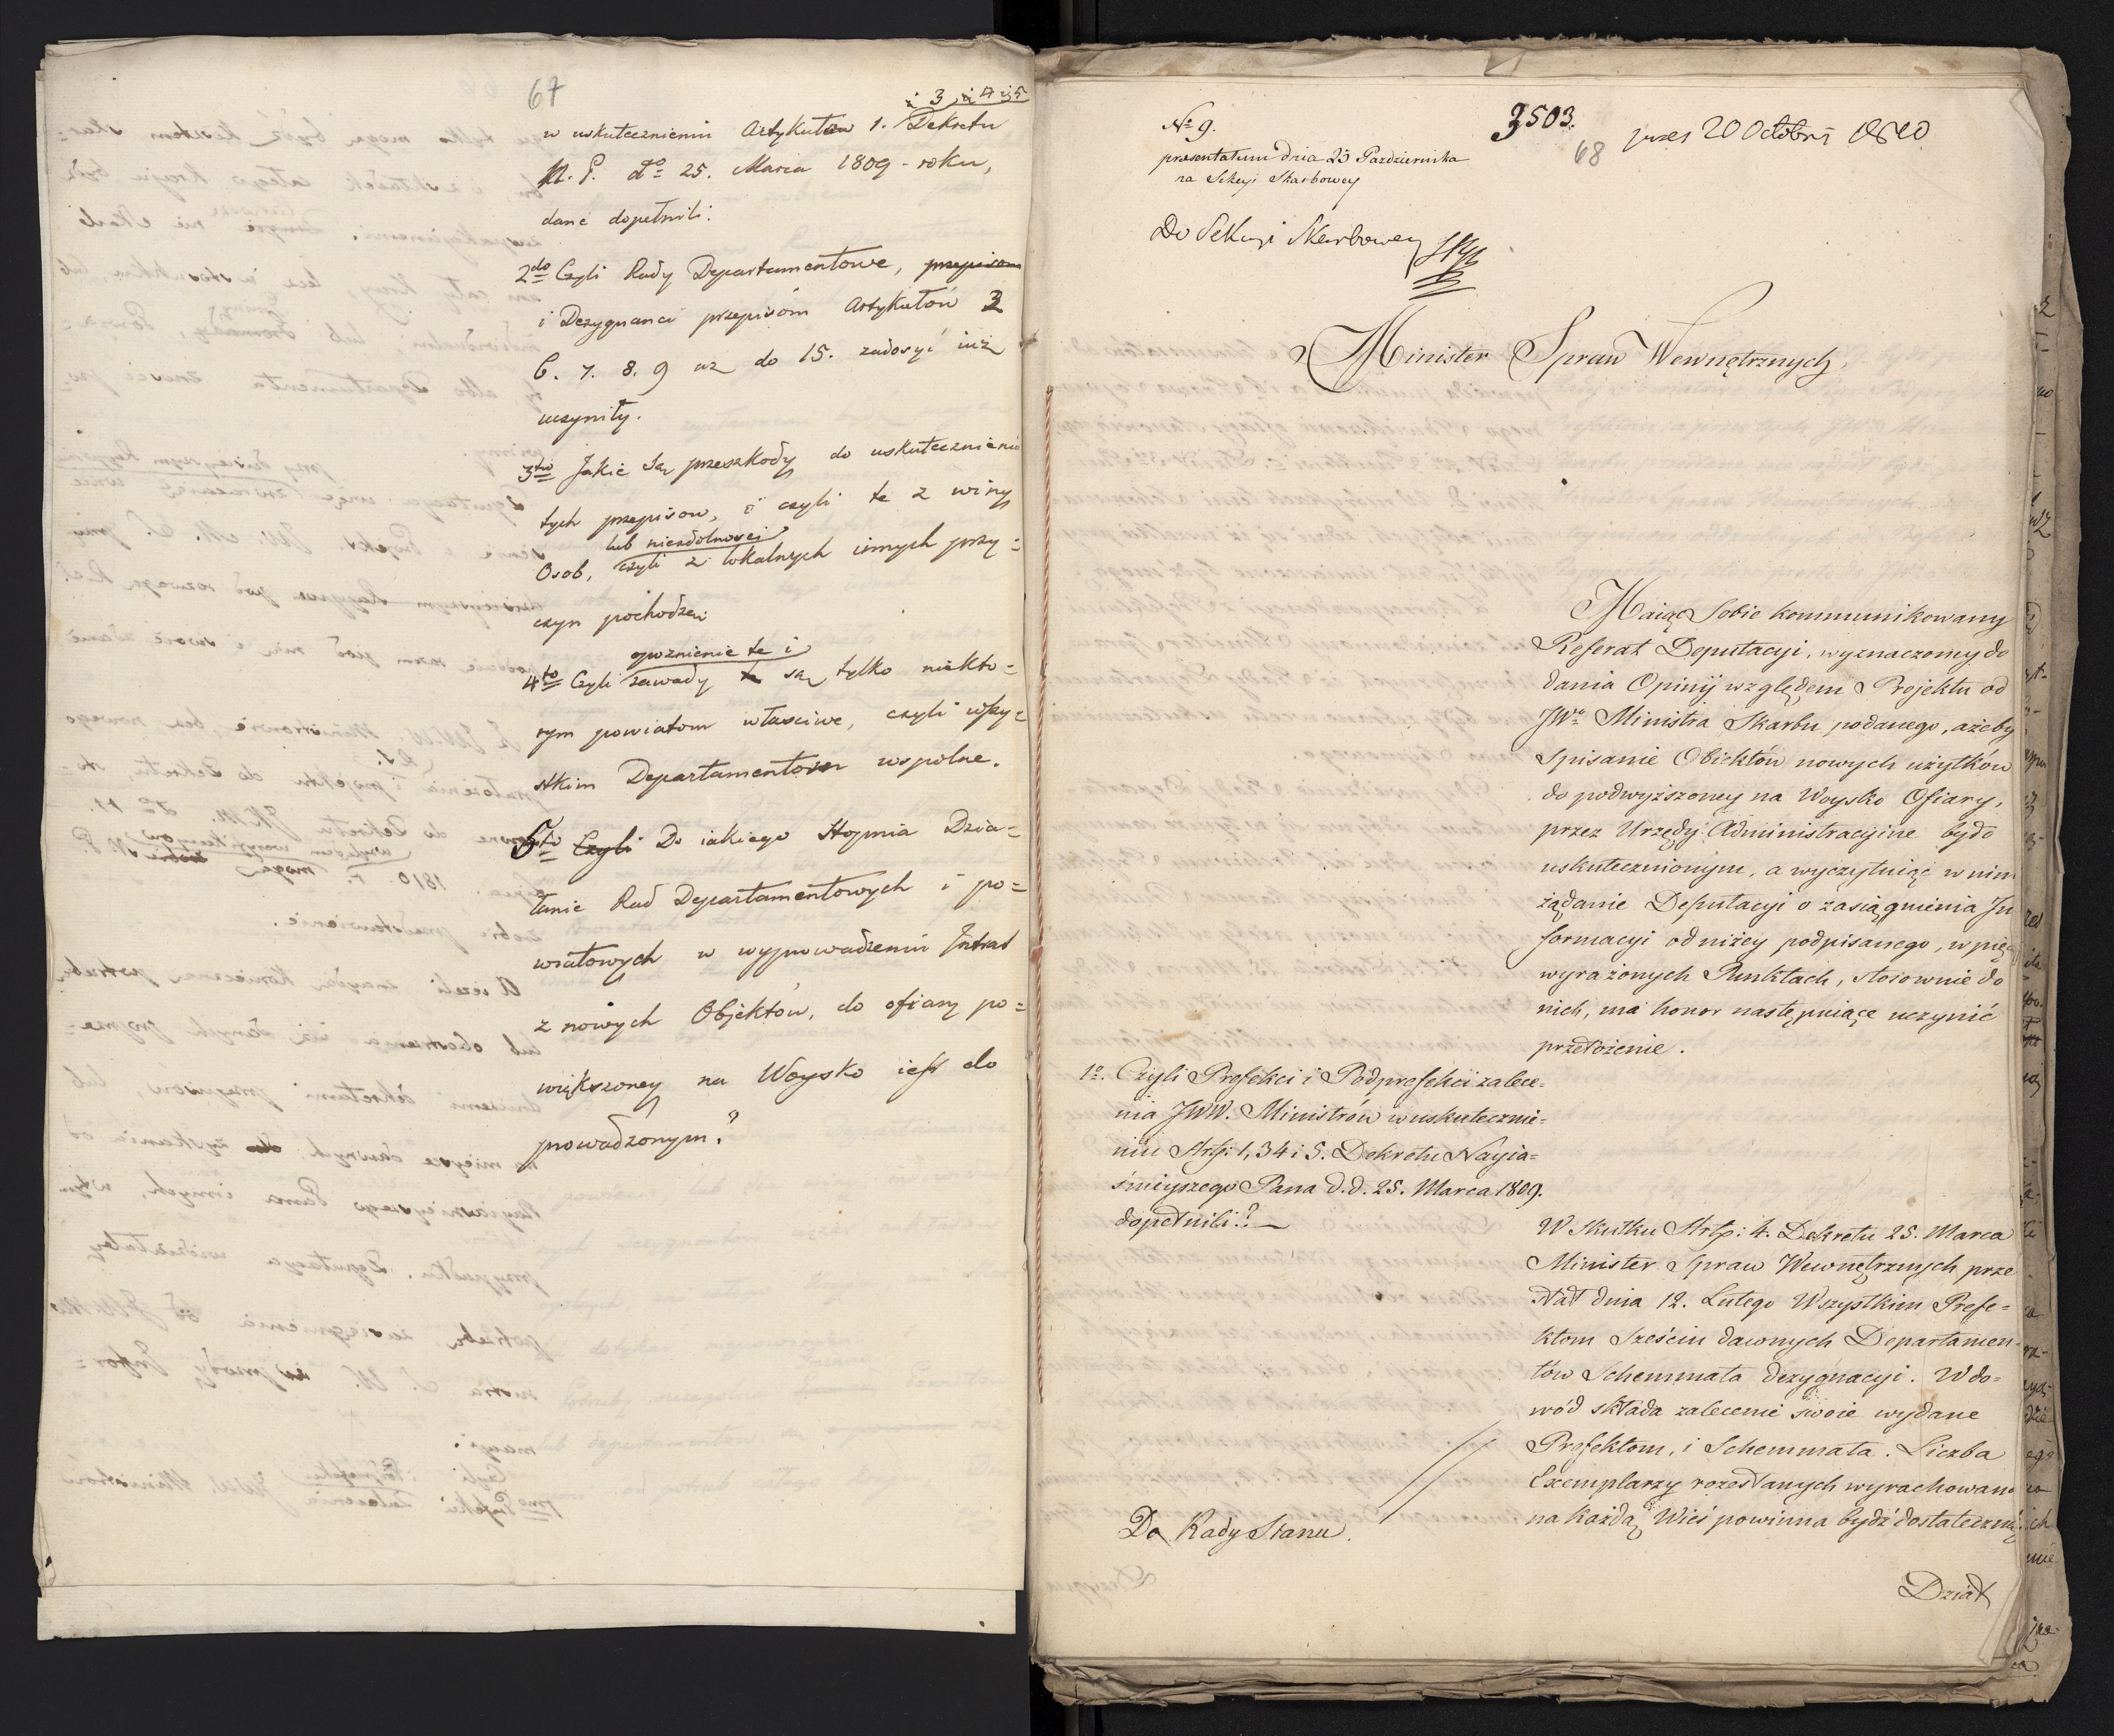 67
i 3 i 4 i 5
w uskutecznieniu Artykułow 1. Dekretu
N. P. do 25. Marca 1809 - roku,
dane dopełnili:
2do Czyli Rady Departamentowe, przepisom
i Dezygnanci przepisóm Artykułów 3
6. 7. 8. 9 az do 15. zadosyć iuż
uczyniły.
3tio Jakie są przeszkody do uskutecznienia
tych przepisow, i czyli te z winy
lub niezdolnosci
Osob, czyli z lokalnych innych przy=
czyn pochodzą
opoznienie te i
4to Czyli zawady te są tylko niekto=
rym powiatom własciwe, czyli wszy=
stkim Departamentom wspolne.
5to Czyli Do iakiego Stopnia Dzia=
łanie Rad Departamentowych i po=
wiatowych w wyprowadzeniu Intrat
z nowych Objektów, do ofiary po=
większoney na Woysko iest do
prowadzonym?
No 9.
praesentatum dnia 23 Pazdziernika
na Sekcyi Skarbowey
3503.
68
praes 20 Octobris 1810
Do Sekcyi Skarbowey
Minister Spraw Wewnętrznych,
Maiąc Sobie kommunikowany
Referat Deputacyi, wyznaczomy do
dania Opinij względem Projektu od
JWo Ministra Skarbu podanego, ażeby
Spisanie Obiektów nowych użytków
do podwyższoney na Woysko Ofiary,
przez Urzędy Administracyine bydo
uskutecznionym, a wyczytuiąc w nim
żądanie Deputacyi o zasiągnienia In
formacyi od niżey podpisanego, w pięciu
wyrażonych Punktach, stosownie do
nich, ma honor następuiące uczynić
przełożenie.
1o. Czyli Prefekci i Podprefekci zalece=
nia JWW. Ministrów w uskutecznie=
niu Artp: 1, 3 4 i 5. Dekretu Nayia=
śnieyszego Pana d.d. 25. Marca 1809.
dopełnili?
W Skutku Artp: 4. Dekretu 25. Marca
Minister Spraw Wewnętrznych prze
słał dnia 12. Lutego Wszystkim Prefe=
ktom Sześciu dawnych Departamen
tów Schemmata dezygnacyi. W do=
wód składa zalecenie swoie wydane
Prefektom, i Schemmata. Liczba
Exemplarzy rozesłanych wyrachowana
na każdą Wieś powinna bydź dostateczną
Do Rady Stanu.
Dział